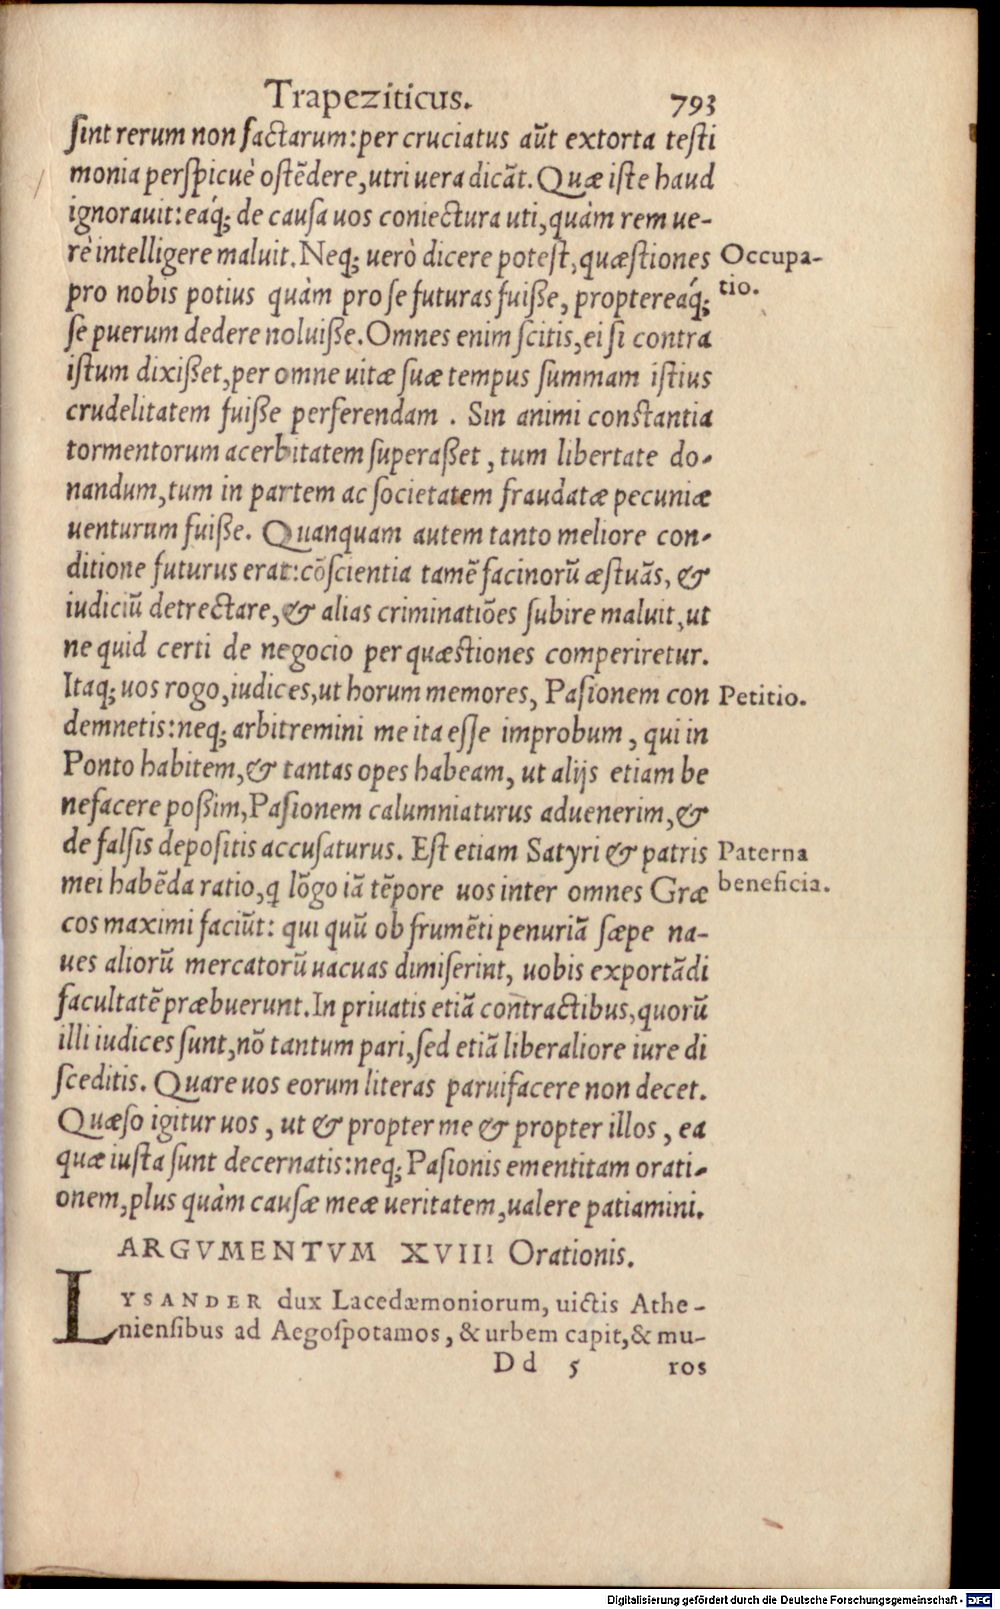 Trapeziticus. 793
ſint rerum non factarum: per cruciatus aūt extorta teſti
monia perſpicuè oſtēdere, utri uera dicāt. Quæ iſte haud
ignorauit: eáq; de cauſa uos coniectura uti, quàm rem ue-
rè intelligere maluit. Neq; uerò dicere poteſt, quæſtiones
Occupa-
tio.
pro nobis potius quàm pro ſe futuras fuiſſe, proptereáq;
ſe puerum dedere noluiſſe. Omnes enim ſcitis, ei ſi contra
iſtum dixiſſet, per omne uitæ ſuæ tempus ſummam iſtius
crudelitatem fuiſſe perferendam . Sin animi conſtantia
tormentorum acerbitatem ſuperaſſet, tum libertate do-
nandum, tum in partem ac ſocietatem fraudatæ pecuniæ
uenturum fuiſſe. Quanquam autem tanto meliore con-
ditione futurus erat: cōſcientia tamē facinorū æſtuās, &
iudiciū detrectare, & alias criminatiōes ſubire maluit, ut
ne quid certi de negocio per quæſtiones comperiretur.
Itaq; uos rogo, iudices, ut horum memores, Paſionem con
Petitio.
demnetis: neq; arbitremini me ita eſſe improbum, qui in
Ponto habitem, & tantas opes habeam, ut alijs etiam be
nefacere poſſim, Paſionem calumniaturus aduenerim, &
de falſis depoſitis accuſaturus. Eſt etiam Satyri & patris
Paterna
beneficia.
mei habēda ratio, q̃ lōgo iā tēpore uos inter omnes Græ
cos maximi faciūt: qui quū ob frumēti penuriā ſæpe na-
ues aliorū mercatorū uacuas dimiſerint, uobis exportādi
facultatē præbuerunt. In priuatis etiā contractibus, quorū
illi iudices ſunt, nō tantum pari, ſed etiā liberaliore iure di
ſceditis. Quare uos eorum literas paruifacere non decet.
Quæſo igitur uos, ut & propter me & propter illos, ea
quæ iuſta ſunt decernatis: neq; Paſionis ementitam orati-
onem, plus quàm cauſæ meæ ueritatem, ualere patiamini.
ARGVMENTVM XVIII Orationis.
LYSANDER dux Lacedæmoniorum, uictis Athe-
nienſibus ad Aegoſpotamos, & urbem capit, & mu-
Dd 5 ros
Digitalisierung gefördert durch die Deutsche Forschungsgemeinschaft - DFG